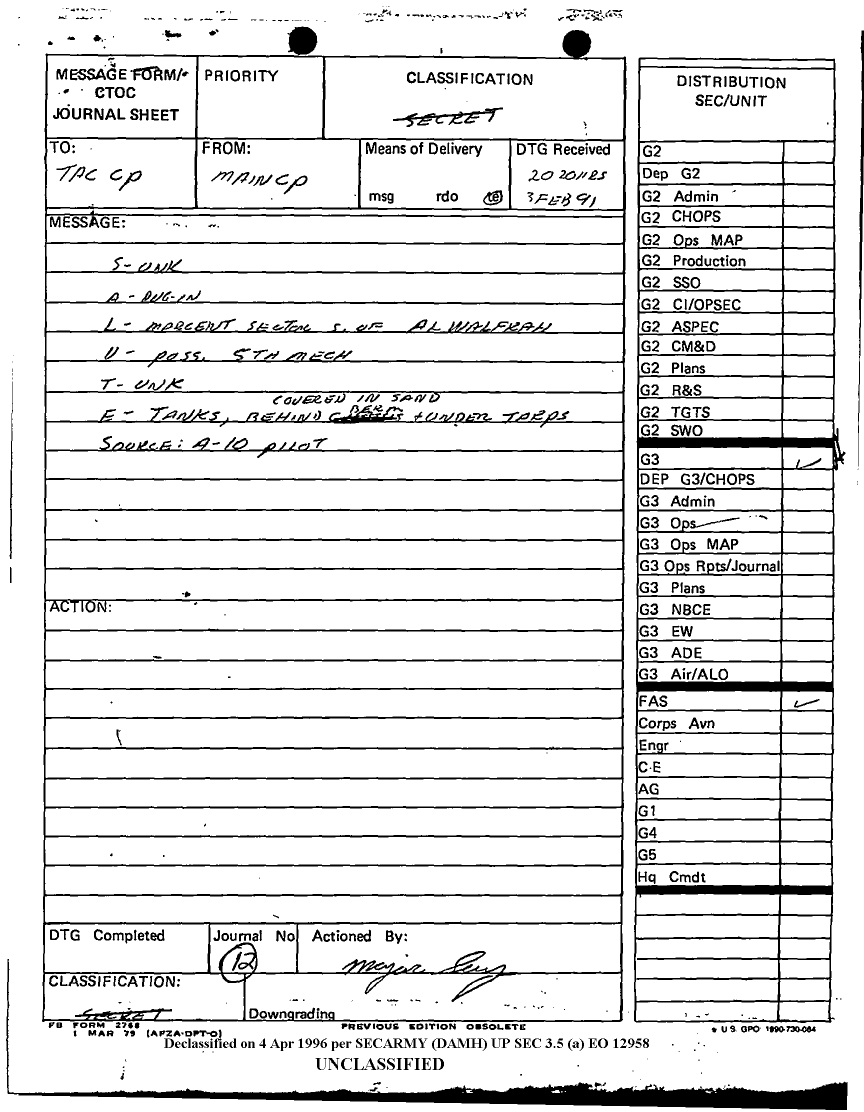 MESSAGE FORM/
CTOC
JOURNAL SHEET
PRIORITY
CLASSIFICATION
SECRET
TO:
TAC CP
FROM:
MAIN CP
Means of Delivery
msg rdo tel
DTG Received
2020HRS
3 FEB 91
MESSAGE:
S- UNK
A - DUG-IN
L - MARCENT SECTOR S. OF AL WALFRAH
U - POSS. 5TH MECH
T- UNK
COVERED IN SAND
E - TANKS, BEHIND BERM + UNDER TARPS
SOURCE: A-10 PILOT
ACTION:
DTG Completed
Journal No
12
Actioned By:
Major
CLASSIFICATION:
SECRET
Downgrading
FB FORM 2768
1 MAR 79 (AFZA-DPT-O)
PREVIOUS EDITION OBSOLETE
DISTRIBUTION
SEC/UNIT
G2
Dep G2
G2 Admin
G2 CHOPS
G2 Ops MAP
G2 Production
G2 SSO
G2 CI/OPSEC
G2 ASPEC
G2 CM&D
G2 Plans
G2 R&S
G2 TGTS
G2 SWO
G3
DEP G3/CHOPS
G3 Admin
G3 Ops
G3 Ops MAP
G3 Ops Rpts/Journal
G3 Plans
G3 NBCE
G3 EW
G3 ADE
G3 Air/ALO
FAS
Corps Avn
Engr
C-E
AG
G1
G4
G5
Hq Cmdt
U.S. GPO: 1990-730-084
Declassified on 4 Apr 1996 per SECARMY (DAMH) UP SEC 3.5 (a) EO 12958
UNCLASSIFIED